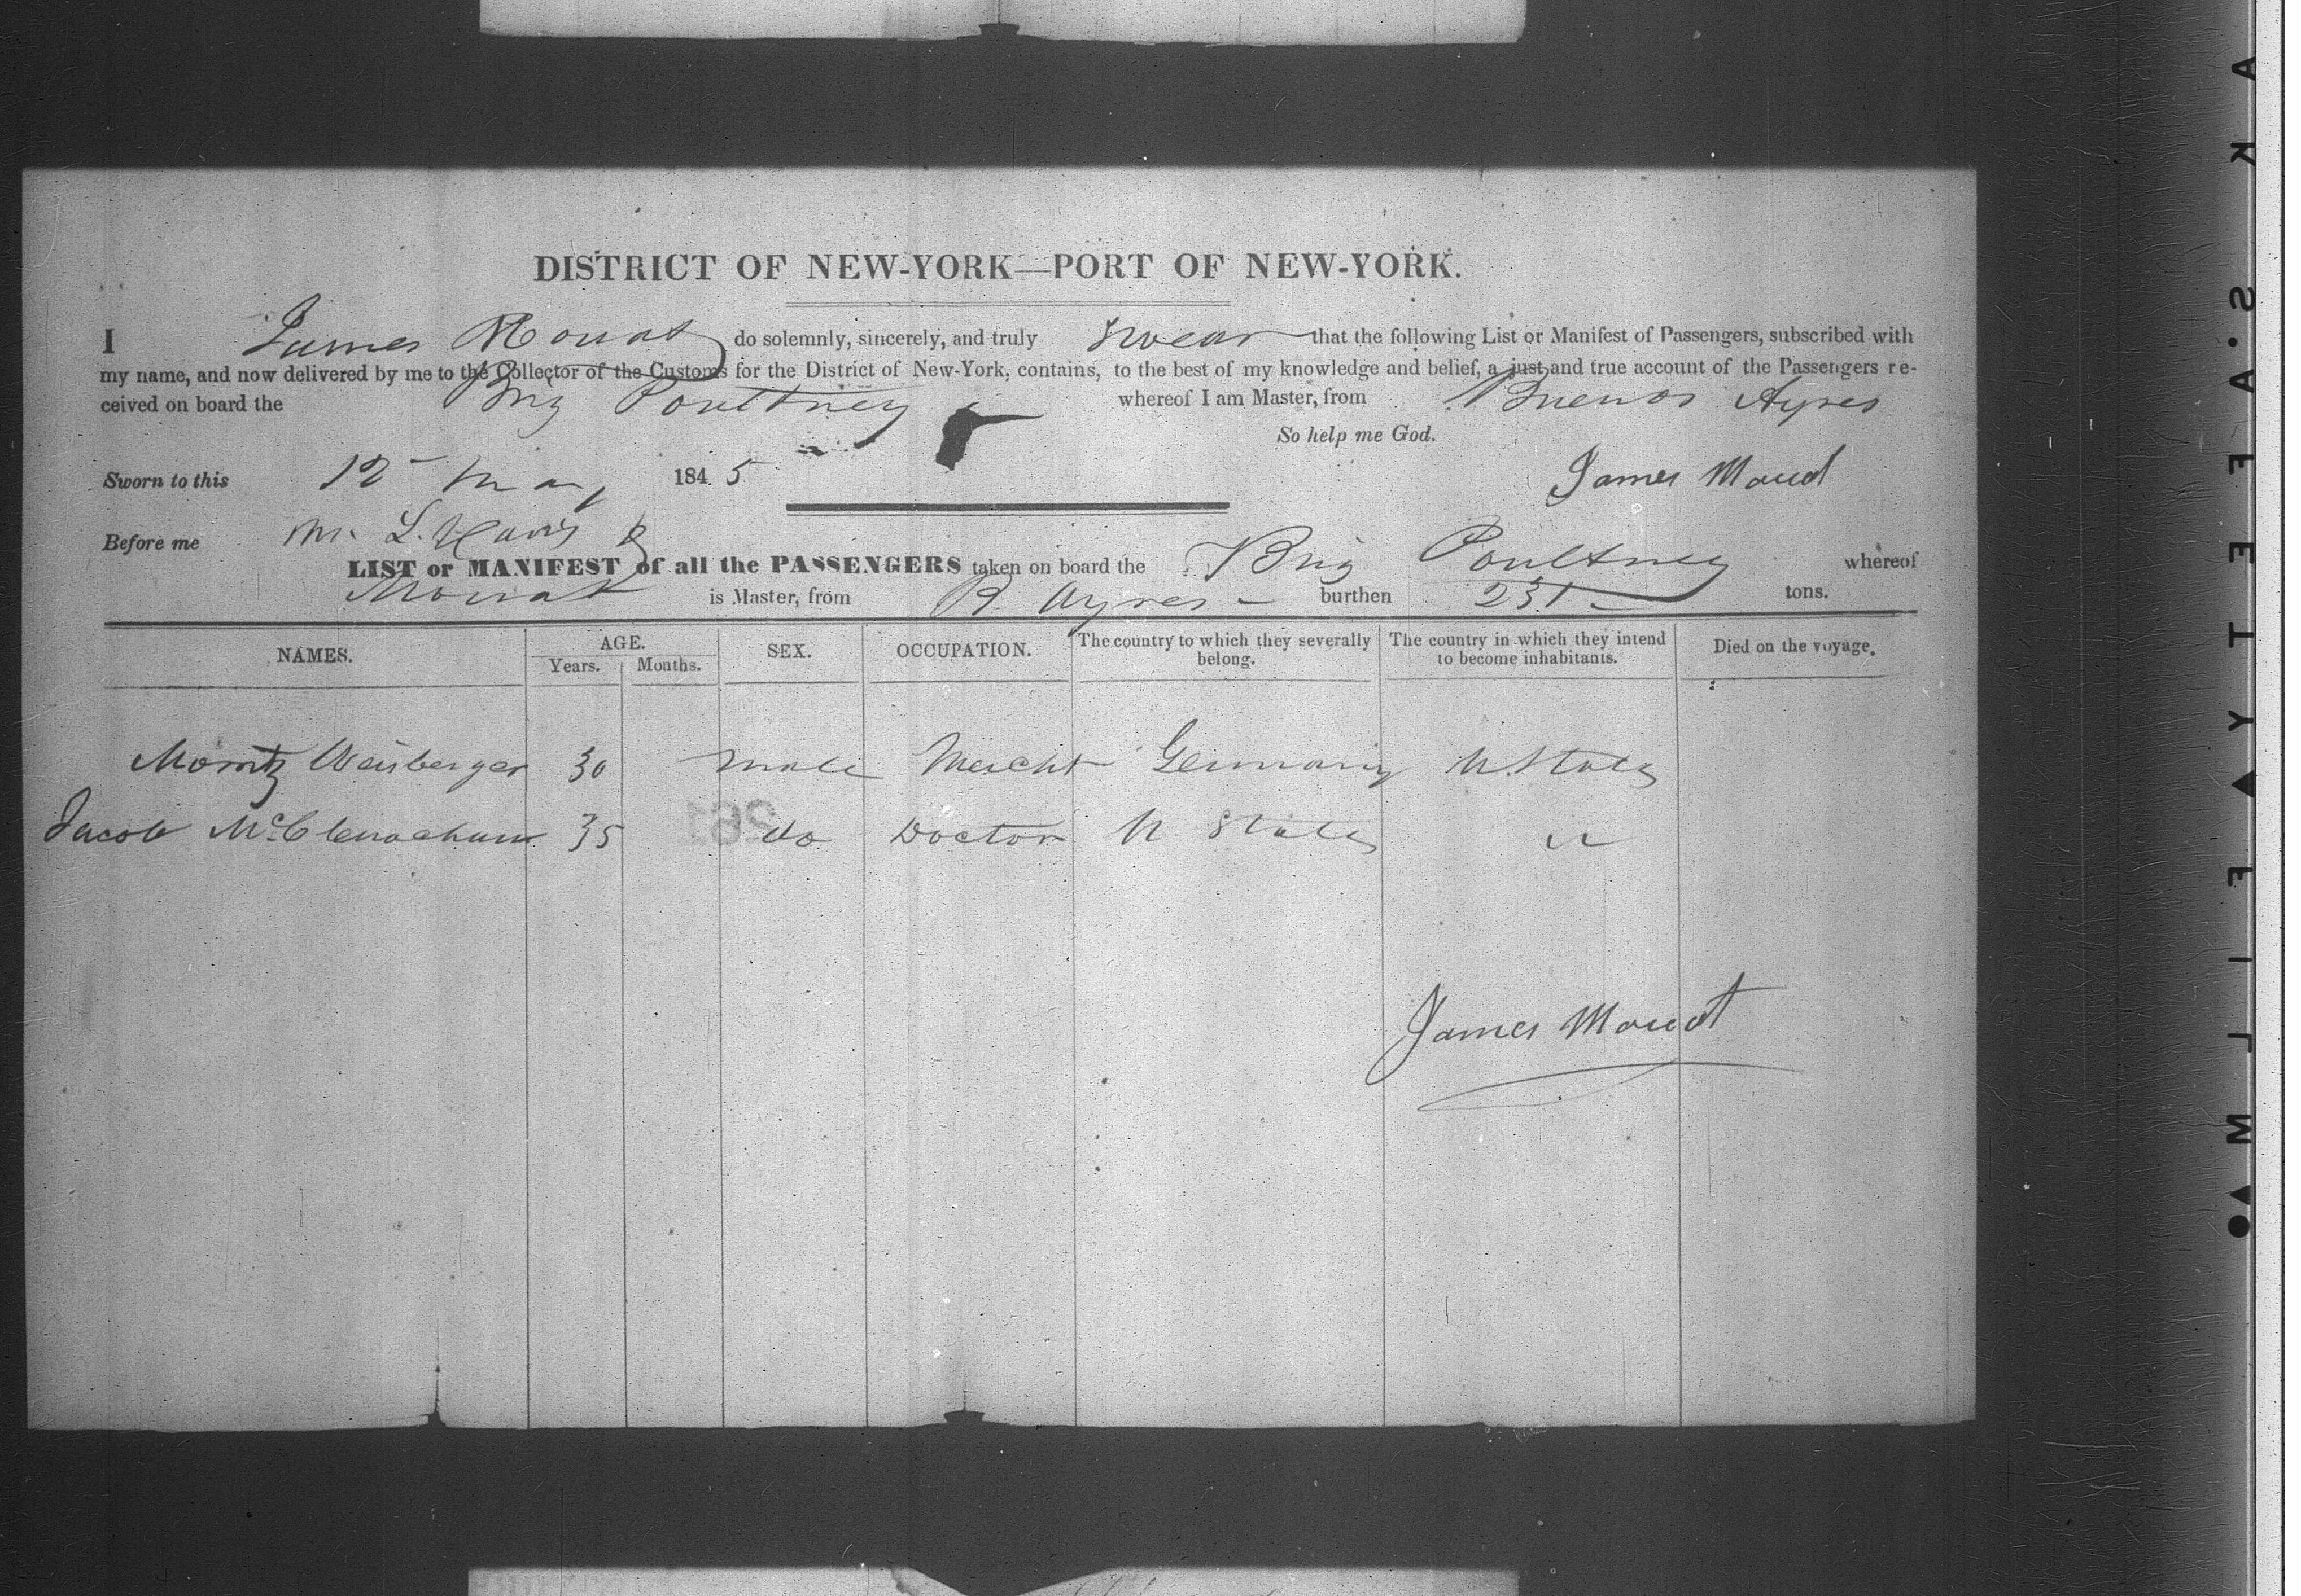 DISTRICT OF NEW-YORK—PORT OF NEW-YORK.
I James Mouat do solemnly, sincerely, and truly swear that the following List or Manifest of Passengers, subscribed with
my name, and now delivered by me to the Collector of the Customs for the District of New-York, contains, to the best of my knowledge and belief, a just and true account of the Passengers re-
ceived on board the Brig Poultney whereof I am Master, from Buenos Ayres
So help me God.
Sworn to this 12 May 1845 James Mouat
Before me M. L. Davis
LIST or MANIFEST of all the PASSENGERS taken on board the Brig Poultney whereof
Mouat is Master, from B. Ayres - burthen 231 tons.
NAMES. AGE. SEX. OCCUPATION. The country to which they severally belong. The country in which they intend to become inhabitants. Died on the voyage.
Years. Months.
Moritz Weisberger 30 male Mercht Germany U. States
Jacob McClenachan 35 do Doctor U States "
261
James Mouat
MJIFAYETTE.S.A KA